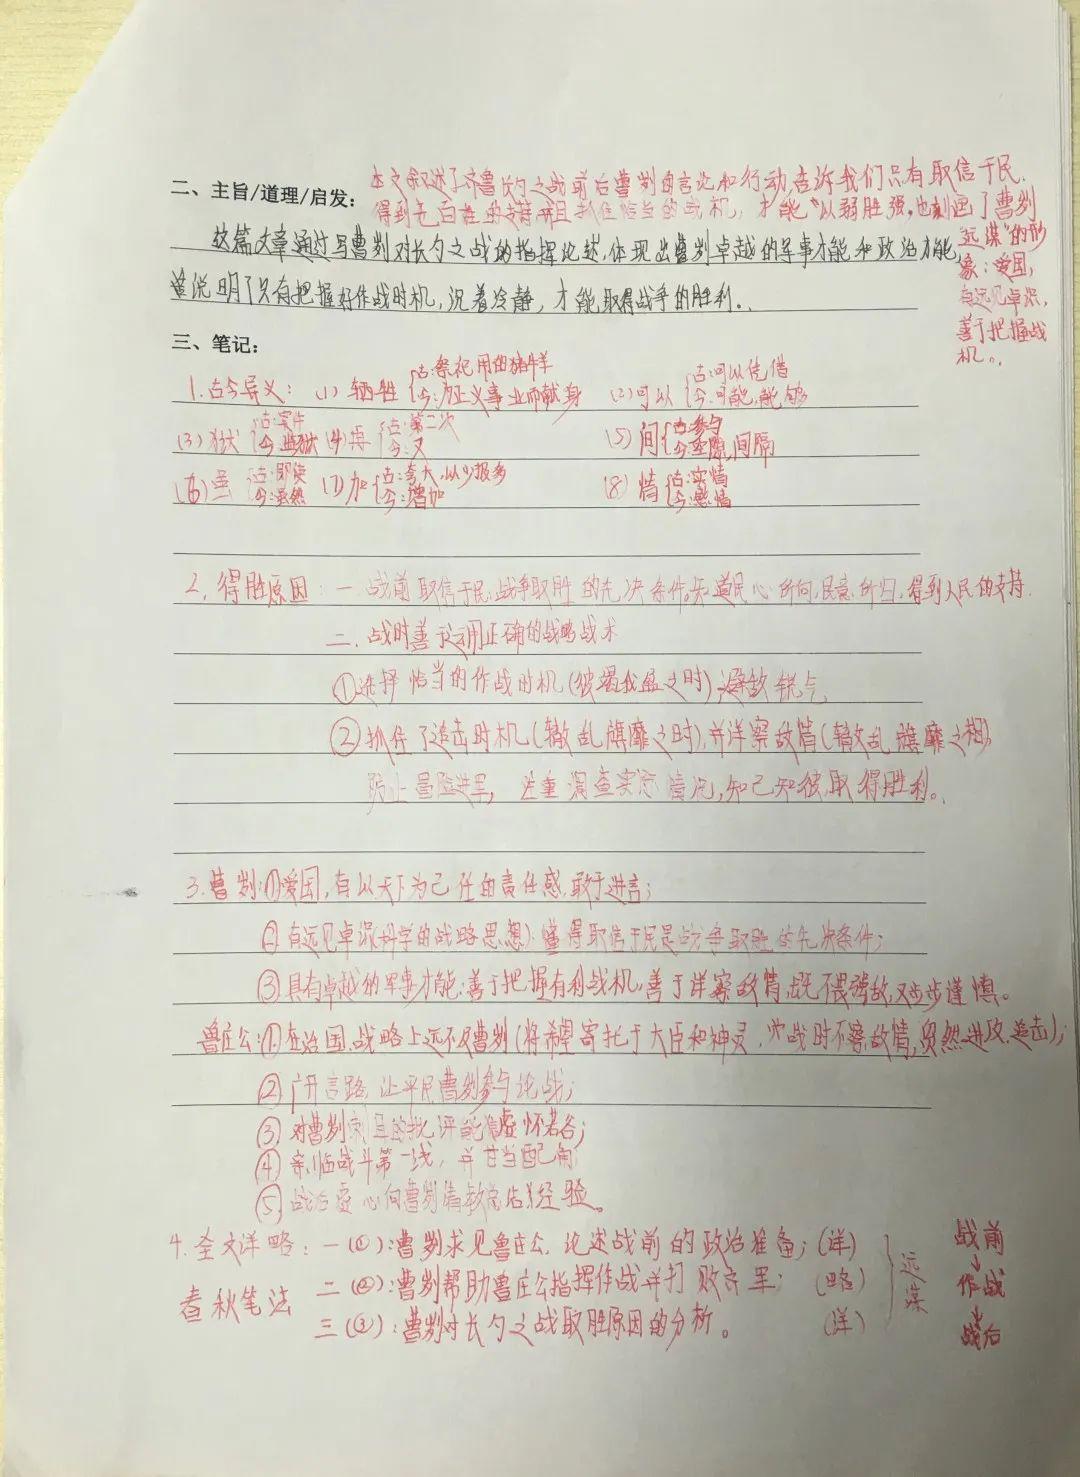 二、主旨/道理/启发：
本文叙述了齐鲁长勺之战前后曹刿的言论和行动,告诉我们只有取信于民,
得到老百姓的支持并且抓住恰当的战机,才能"以弱胜强,也刻画了曹刿
"远谋"的形
象：爱国,
有远见卓识,
善于把握战
机。
这篇文章通过写曹刿对长勺之战的指挥论述,体现出曹刿卓越的军事才能和政治才能,
说明了只有把握好作战时机,沉着冷静,才能取得战争的胜利。
三、笔记：
1.古今异义：(1)牺牲{古:祭祀用的猪牛羊 今:为正义事业而献身 (2)可以{古:可以凭借 今:可能,能够
(3)狱{古:案件 今:监狱 (4)再{古:第二次 今:又 (5)间{古:参与 今:空隙,间隔
(6)虽{古:即使 今:虽然 (7)加{古:夸大,以少报多 今:增加 (8)情{古:实情 今:感情
2.得胜原因：一.战前取信于民:战争取胜的先决条件,知道民心所向,民意所归,得到人民的支持.
二.战时善于运用正确的战略战术
①选择恰当的作战时机(彼竭我盈之时),避敌锐气
②抓住了追击时机(辙乱旗靡之时),并详察敌情(辙乱旗靡之相),
防止冒险进军,注重调查实际情况,知己知彼,取得胜利。
3.曹刿:①爱国,有以天下为己任的责任感,敢于进言;
②有远见卓识(科学的战略思想):懂得取信于民是战争取胜的先决条件;
③具有卓越的军事才能:善于把握有利战机,善于详察敌情,既不畏强敌,又步步谨慎。
鲁庄公:①在治国、战略上远不及曹刿(将希望寄托于大臣和神灵,作战时不察敌情,贸然进攻、追击);
②广开言路,让平民曹刿参与论战;
③对曹刿的批评能虚怀若谷;
④亲临战斗第一线,并甘当配角
⑤战后虚心向曹刿请教总结经验。
4.全文详略：一(①):曹刿求见鲁庄公,论述战前的政治准备;(详)
春秋笔法
二(②):曹刿帮助鲁庄公指挥作战并打败齐军;(略)
三(③):曹刿对长勺之战取胜原因的分析。(详)
远谋
战前
↓
作战
↓
战后